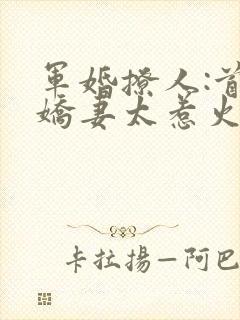 軍婚撩人:首
嬌妻太惹火
卡拉揚—阿巴